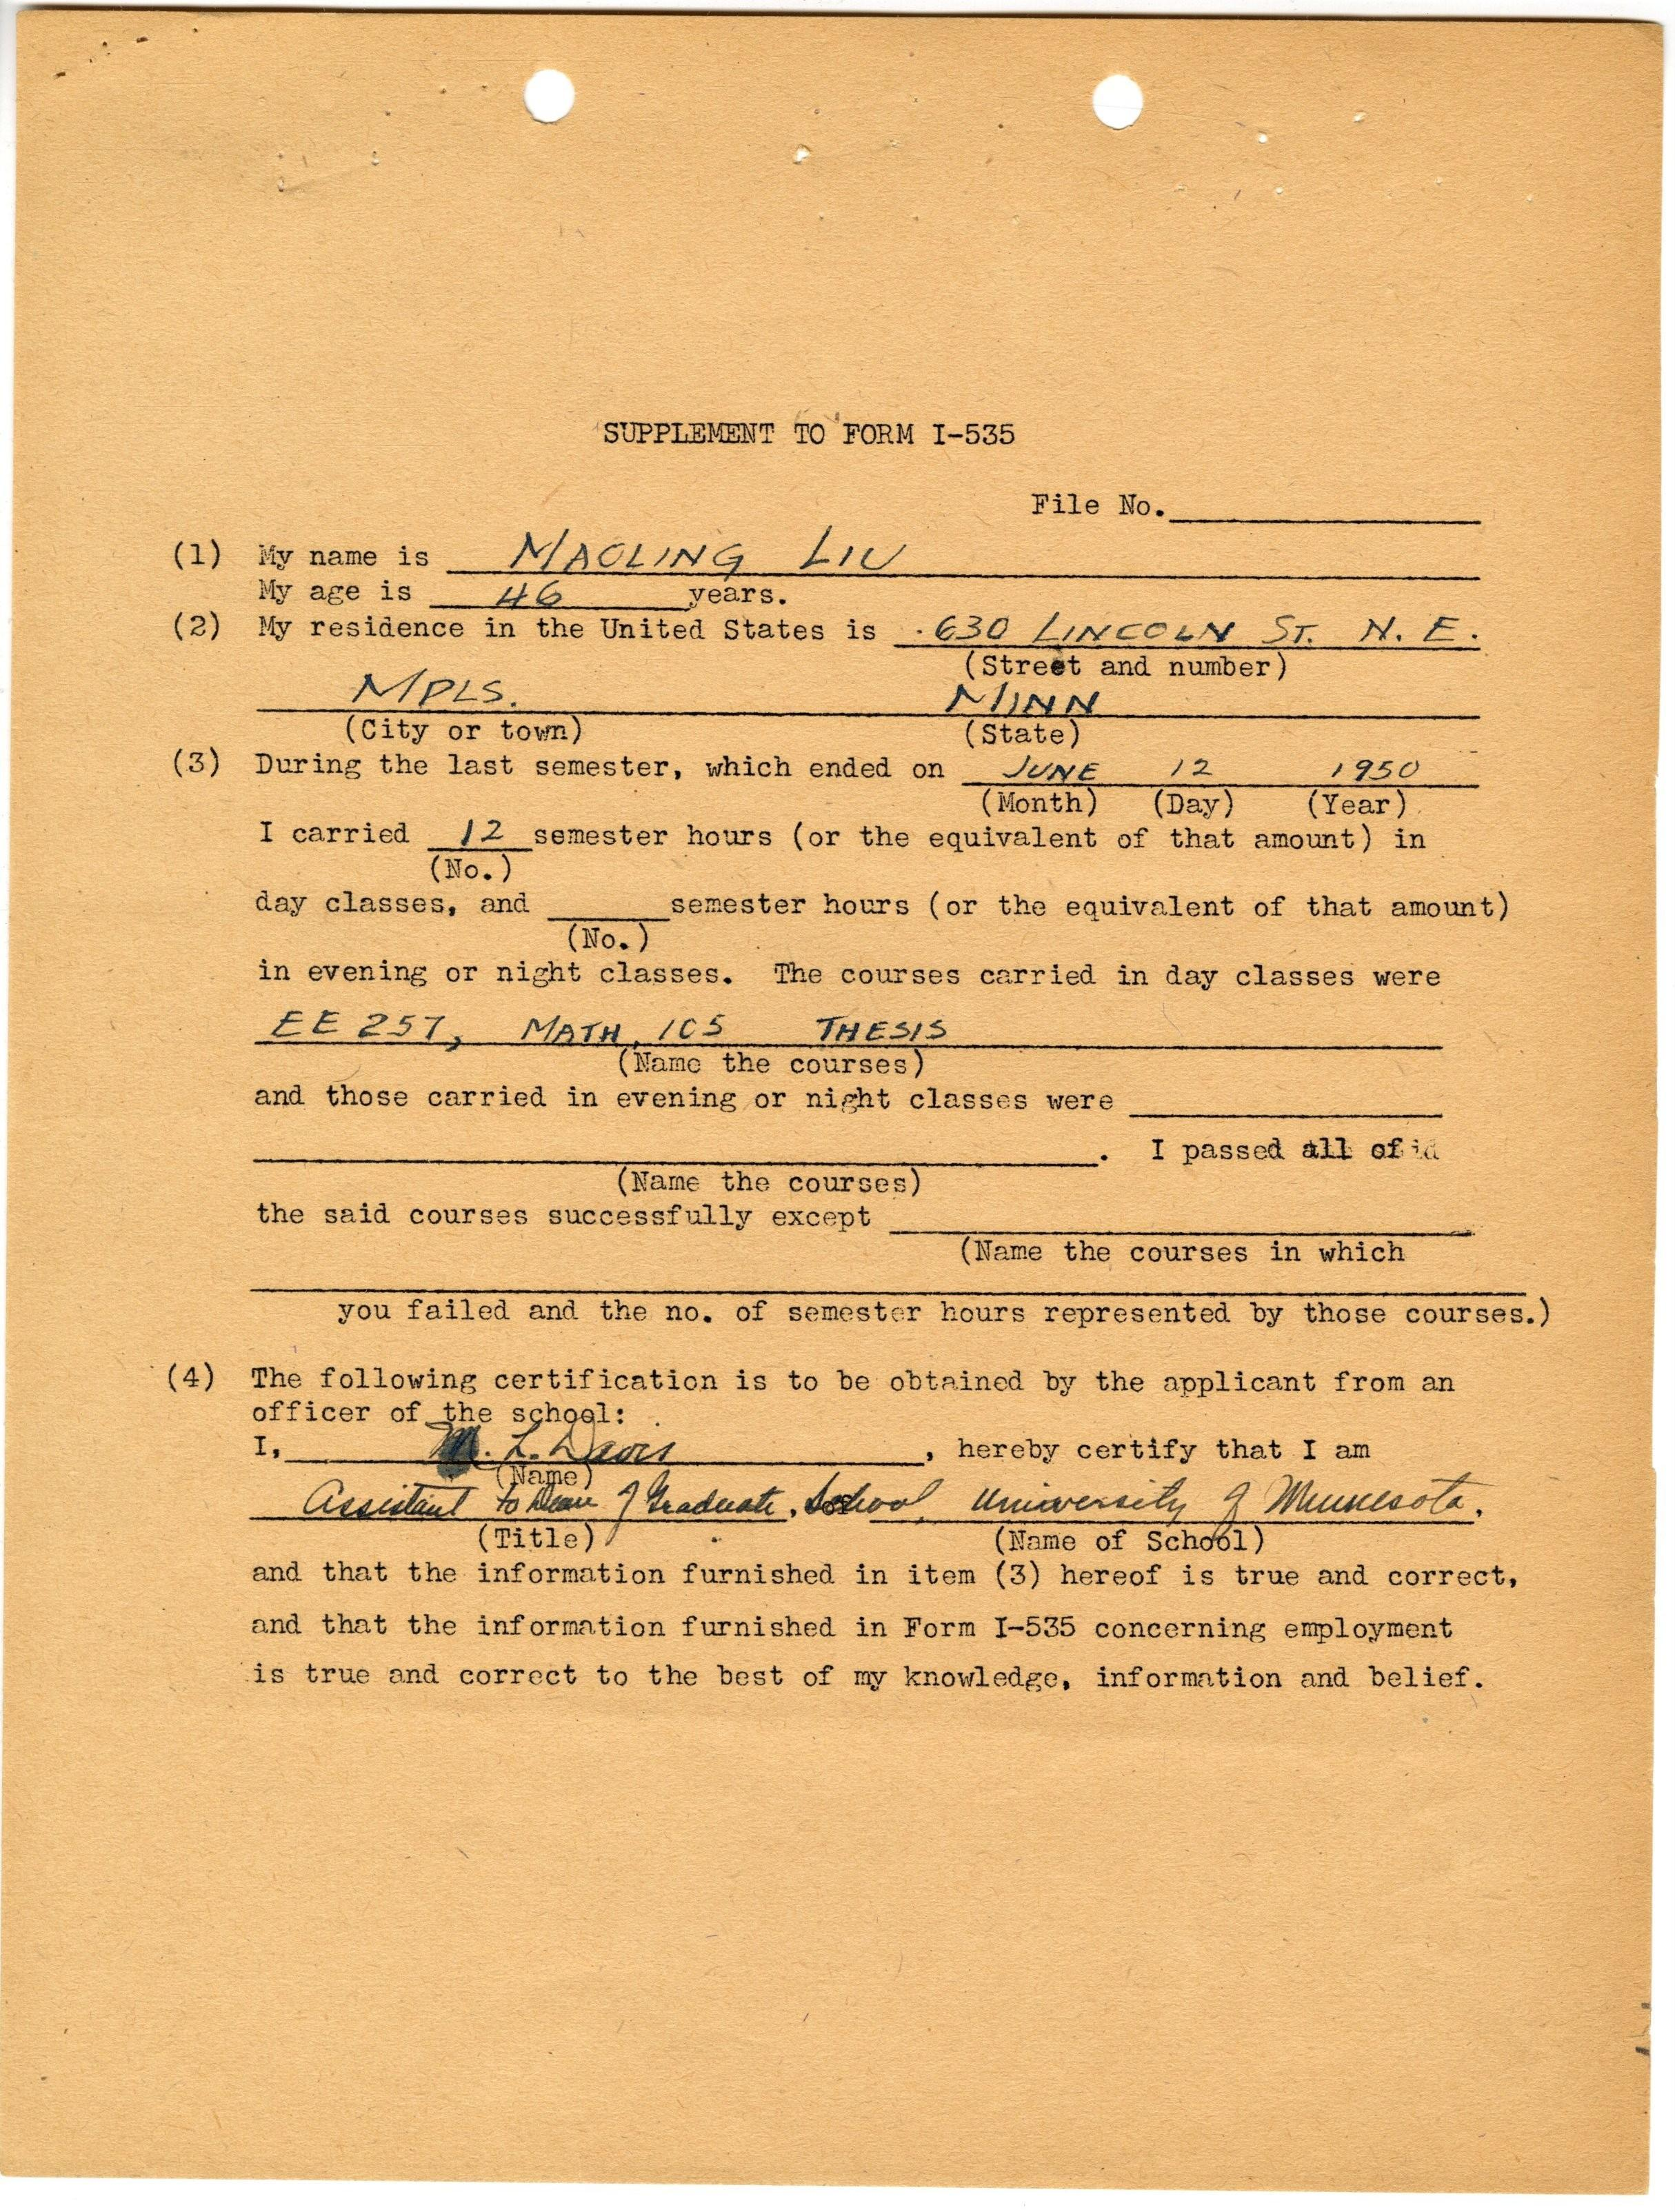 SUPPLEMENT TO FORM I-535
File No.
(1) My name is MAOLING LIU
My age is 46 years.
(2) My residence in the United States is 630 LINCOLN ST. N. E.
(Street and number)
MPLS. MINN
(City or town) (State)
(3) During the last semester, which ended on JUNE 12 1950
(Month) (Day) (Year)
I carried 12 semester hours (or the equivalent of that amount) in
(No.)
day classes, and semester hours (or the equivalent of that amount)
(No.)
in evening or night classes. The courses carried in day classes were
EE 257, MATH 105 THESIS
(Name the courses)
and those carried in evening or night classes were
. I passed all of
(Name the courses)
the said courses successfully except
(Name the courses in which
you failed and the no. of semester hours represented by those courses.)
(4) The following certification is to be obtained by the applicant from an
officer of the school:
I, M. L. Davis, hereby certify that I am
(Name)
Assistant to Dean of Graduate School, University of Minnesota.
(Title) (Name of School)
and that the information furnished in item (3) hereof is true and correct,
and that the information furnished in Form I-535 concerning employment
is true and correct to the best of my knowledge, information and belief.